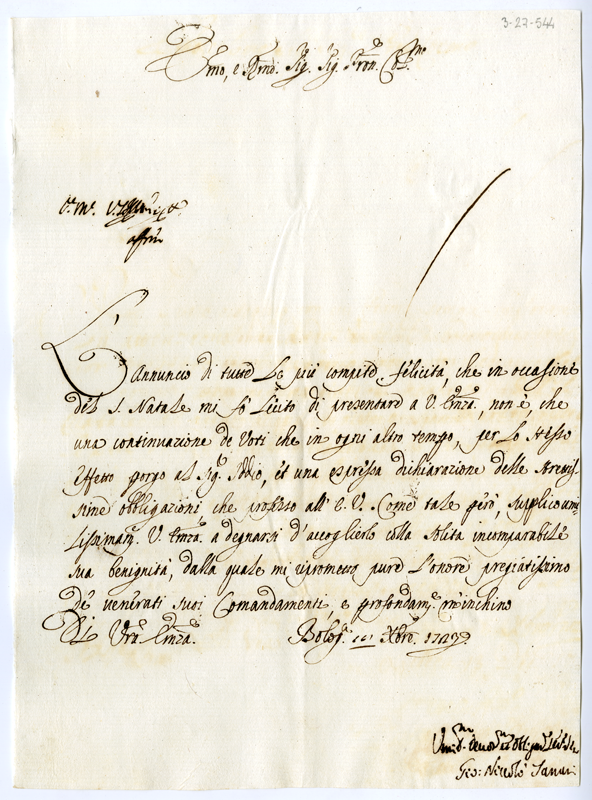 3-27-544
Emo, e Rmo. Sig. Sig. Pron. Col.mo
L'Annuncio di tutte le più compite felicità, che in occasione
del S. Natale mi fò lecito di presentare a V. Emza., non è che
una continuazione de Voti che in ogni altro tempo, per lo stesso
effetto porgo al Sig. Iddio, et una espressa dichiarazione delle stretis-
sime obbligazioni che professo all'E. V. Come tale però, supplico umi-
lissimam. V. Emza. a degnarsi d'accoglierlo colla solita incomparabile
sua benignità, dalla quale mi riprometto pure l'onore pregiatissimo
de venerati suoi Comandamenti e profondam. m'inchino
Di Vra. Emza. Bolog. Xbre. 1749.
Umo. Devmo. et Obligmo.
Gio: Niccolò